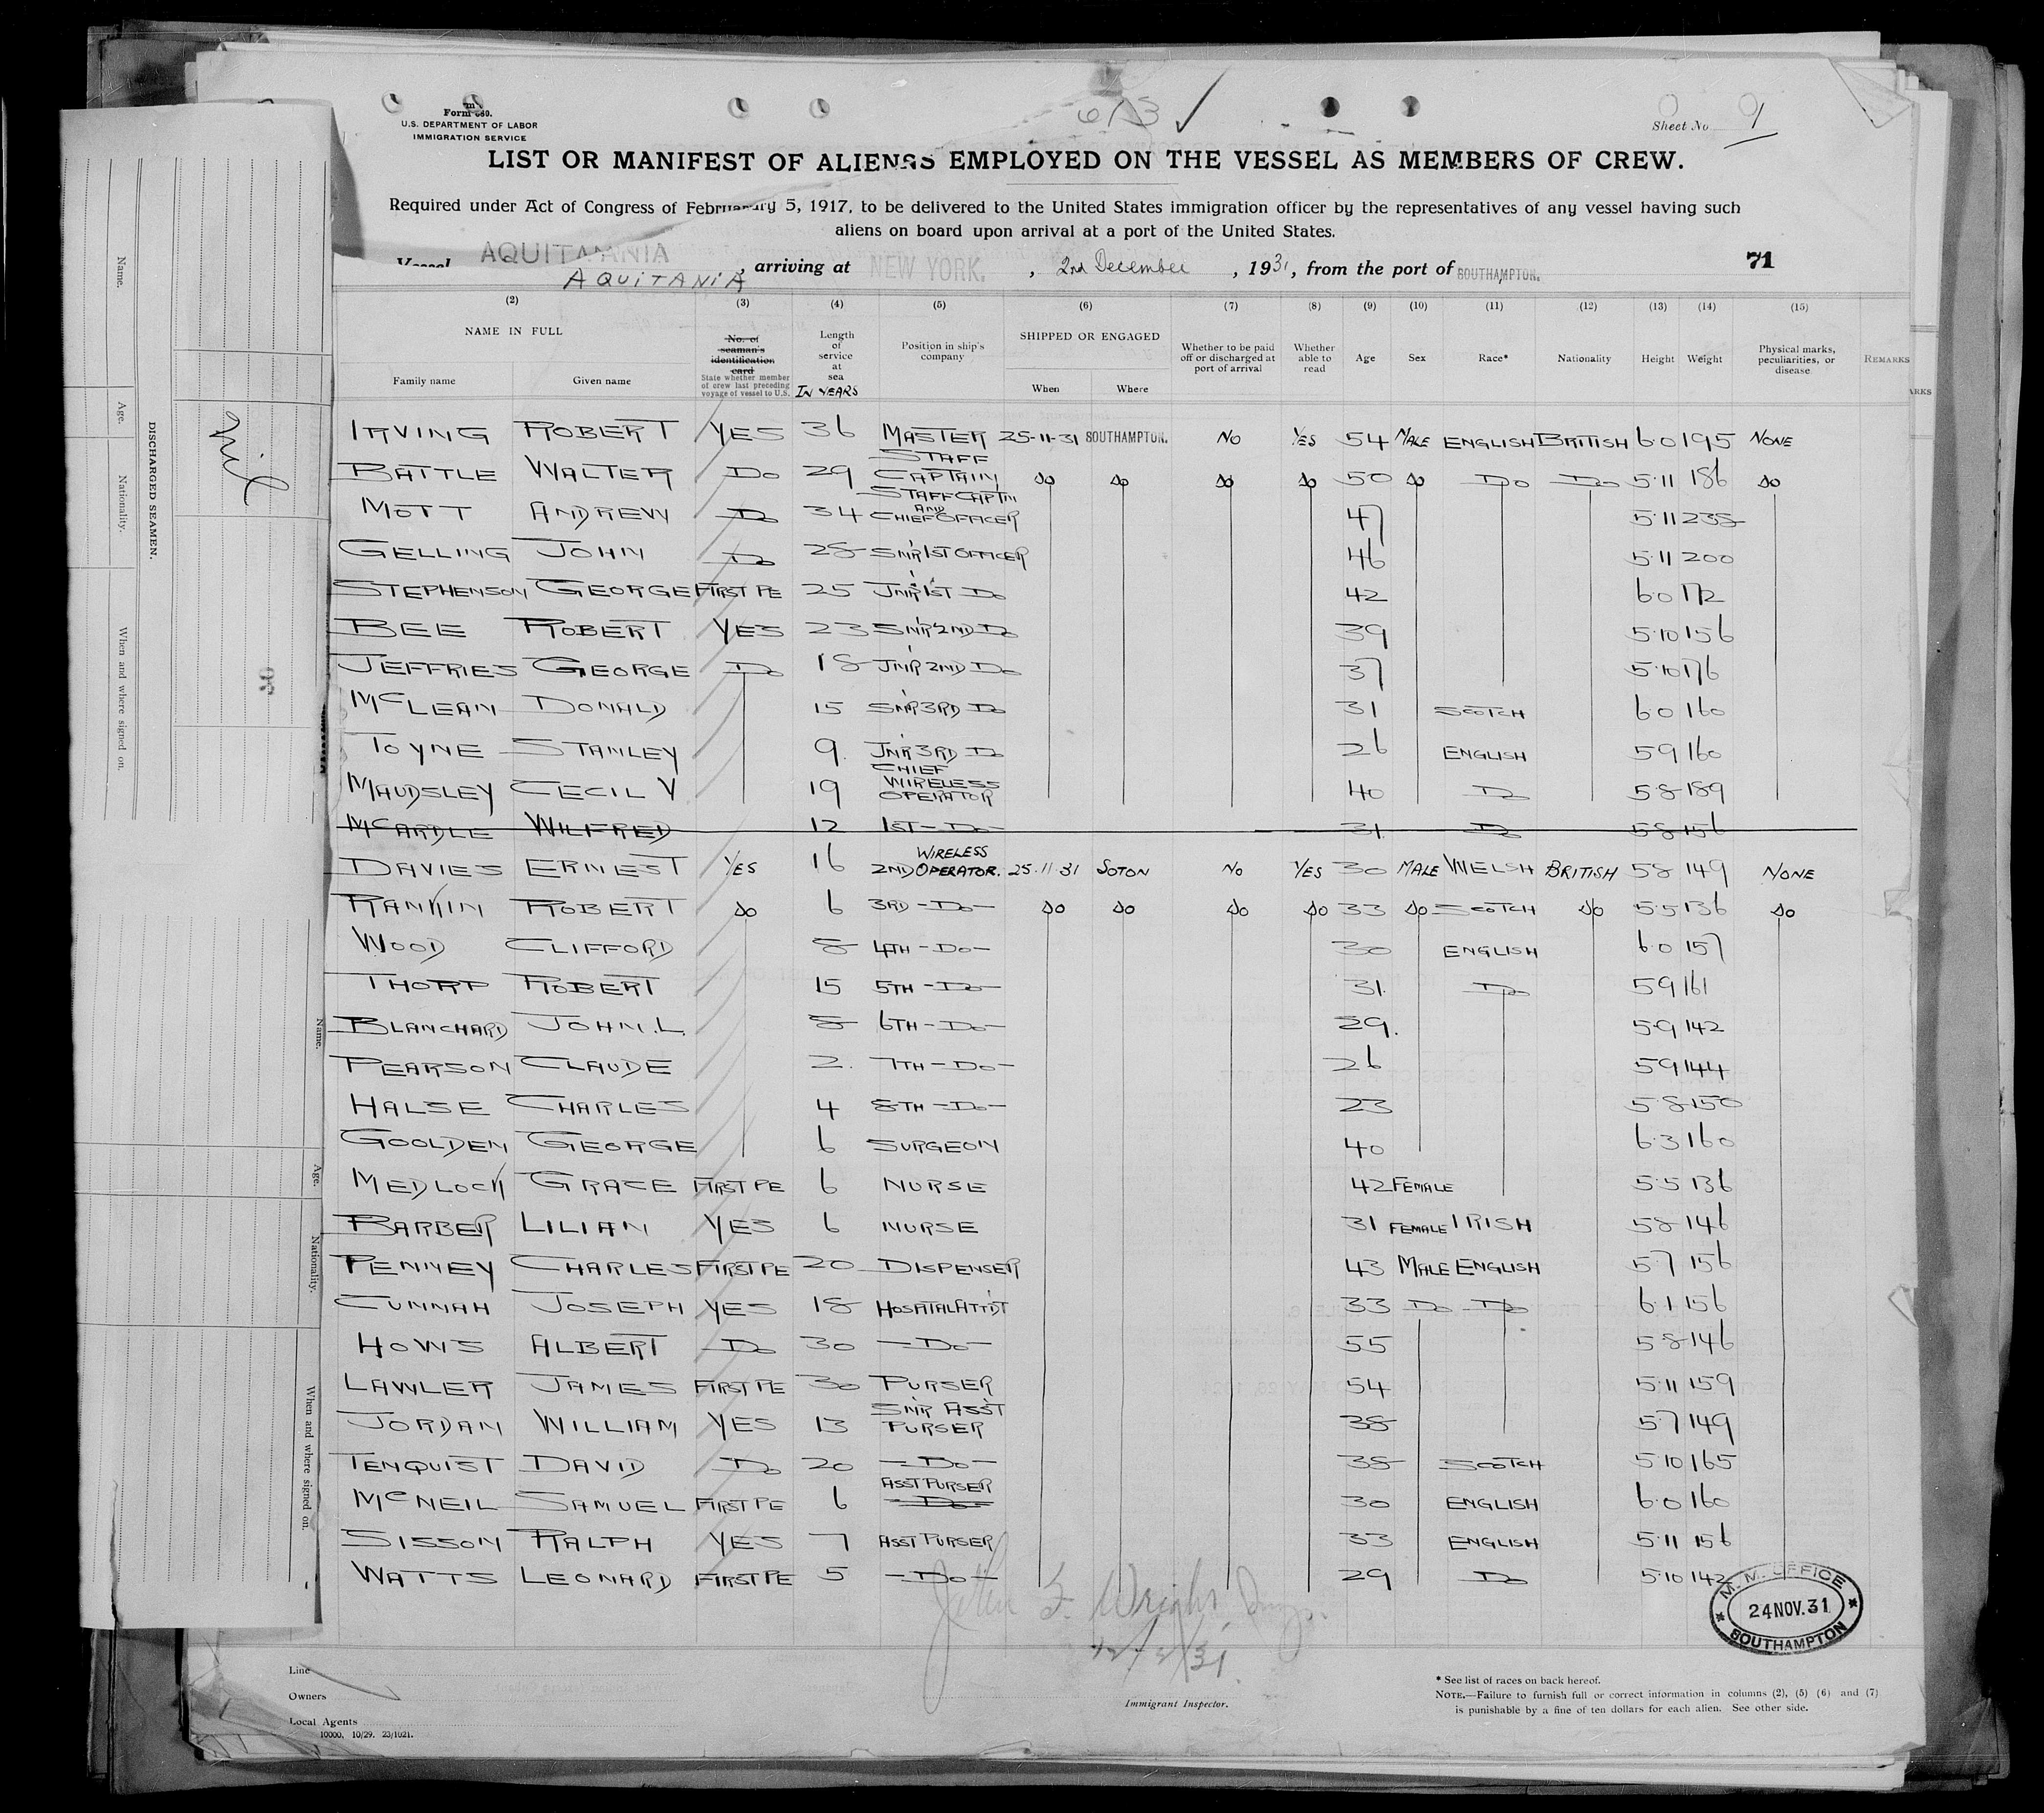 Form 680.
U.S. DEPARTMENT OF LABOR
IMMIGRATION SERVICE
Sheet No 9
LIST OR MANIFEST OF ALIENS EMPLOYED ON THE VESSEL AS MEMBERS OF CREW.
Required under Act of Congress of February 5, 1917, to be delivered to the United States immigration officer by the representatives of any vessel having such
aliens on board upon arrival at a port of the United States.
Vessel AQUITANIA
AQUITANIA, arriving at NEW YORK., 2nd December, 1931, from the port of SOUTHAMPTON. 71
(2) (3) (4) (5) (6) (7) (8) (9) (10) (11) (12) (13) (14) (15)
NAME IN FULL
Family name Given name
No. of seaman's identification card
State whether member of crew last preceding voyage of vessel to U.S.
Length of service at sea
IN YEARS
Position in ship's company
SHIPPED OR ENGAGED
When Where
Whether to be paid off or discharged at port of arrival
Whether able to read
Age Sex Race* Nationality Height Weight
Physical marks, peculiarities, or disease
REMARKS
IRVING ROBERT YES 36 MASTER 25-11-31 SOUTHAMPTON. NO YES 54 MALE ENGLISH BRITISH 6.0 195 NONE
BATTLE WALTER DO 29 STAFF CAPTAIN DO DO DO DO 50 DO DO DO 5.11 186 DO
MOTT ANDREW DO 34 STAFF CAPT'N AND CHIEF OFFICER 47 5.11 238
GELLING JOHN DO 28 SN'R 1ST OFFICER 46 5.11 200
STEPHENSON GEORGE FIRST PE 25 JN'R 1ST DO 42 6.0 172
BEE ROBERT YES 23 SN'R 2ND DO 39 5.10 156
JEFFRIES GEORGE DO 18 JNR 2ND DO 37 5.10 176
McLEAN DONALD 15 SN'R 3RD DO 31 SCOTCH 6.0 160
TOYNE STANLEY 9. JN'R 3RD DO 26 ENGLISH 5.9 160
MAUDSLEY CECIL V 19 CHIEF WIRELESS OPERATOR 40 DO 5.8 189
McARDLE WILFRED 12 1ST-DO- 31 DO 5.8 156
DAVIES ERNEST YES 16 2ND WIRELESS OPERATOR. 25.11.31 SOTON NO YES 30 MALE WELSH BRITISH 5.8 149 NONE
RANKIN ROBERT DO 6 3RD-DO- DO DO DO DO 33 DO SCOTCH DO 5.5 136 DO
WOOD CLIFFORD 8 4TH-DO- 30 ENGLISH 6.0 157
THORP ROBERT 15 5TH-DO- 31. DO 5.9 161
BLANCHARD JOHN.L. 8 6TH-DO- 29. 5.9 142
PEARSON CLAUDE 2. 7TH-DO- 26 5.9 144
HALSE CHARLES 4 8TH-DO- 23 5.8 150
GOOLDEN GEORGE 6 SURGEON 40 6.3 160
MEDLOCK GRACE FIRST PE 6 NURSE 42 FEMALE 5.5 136
BARBER LILIAN YES 6 NURSE 31 FEMALE IRISH 5.8 146
PENNEY CHARLES FIRST PE 20 DISPENSER 43 MALE ENGLISH 5.7 156
CUNNAH JOSEPH YES 18 HOSPITAL ATT'DT 33 DO DO 6.1 156
HOWS ALBERT DO 30 -DO- 55 5.8 146
LAWLER JAMES FIRST PE 30 PURSER 54 5.11 159
JORDAN WILLIAM YES 13 SN'R ASST PURSER 38 5.7 149
TENQUIST DAVID DO 20 -DO- 38 SCOTCH 5.10 165
McNEIL SAMUEL FIRST PE 6 ASST PURSER -DO- 30 ENGLISH 6.0 160
SISSON RALPH YES 7 ASST PURSER 33 ENGLISH 5.11 156
WATTS LEONARD FIRST PE 5 -DO- 29 DO 5.10 142
M. M. OFFICE
24 NOV. 31
SOUTHAMPTON
John F. Wright
12/2/31.
Immigrant Inspector.
Line
Owners
Local Agents
10000, 10/29. 23/1021.
* See list of races on back hereof.
NOTE.—Failure to furnish full or correct information in columns (2), (5) (6) and (7)
is punishable by a fine of ten dollars for each alien. See other side.
DISCHARGED SEAMEN.
Name. Age. Nationality. When and where signed on.
nil
Name. Age. Nationality. When and where signed on.